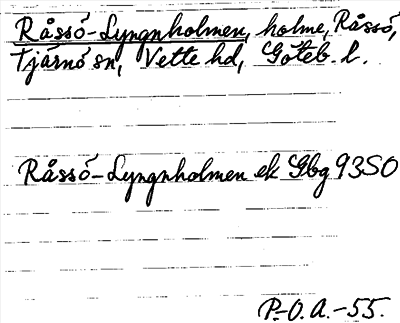 Råssö-Lyngnholmen, holme, Råssö,
Tjärnö sn, Vette hd, Göteb. l.
Råssö-Lyngnholmen ek Gbg 93SO
P.-O. A. -55.